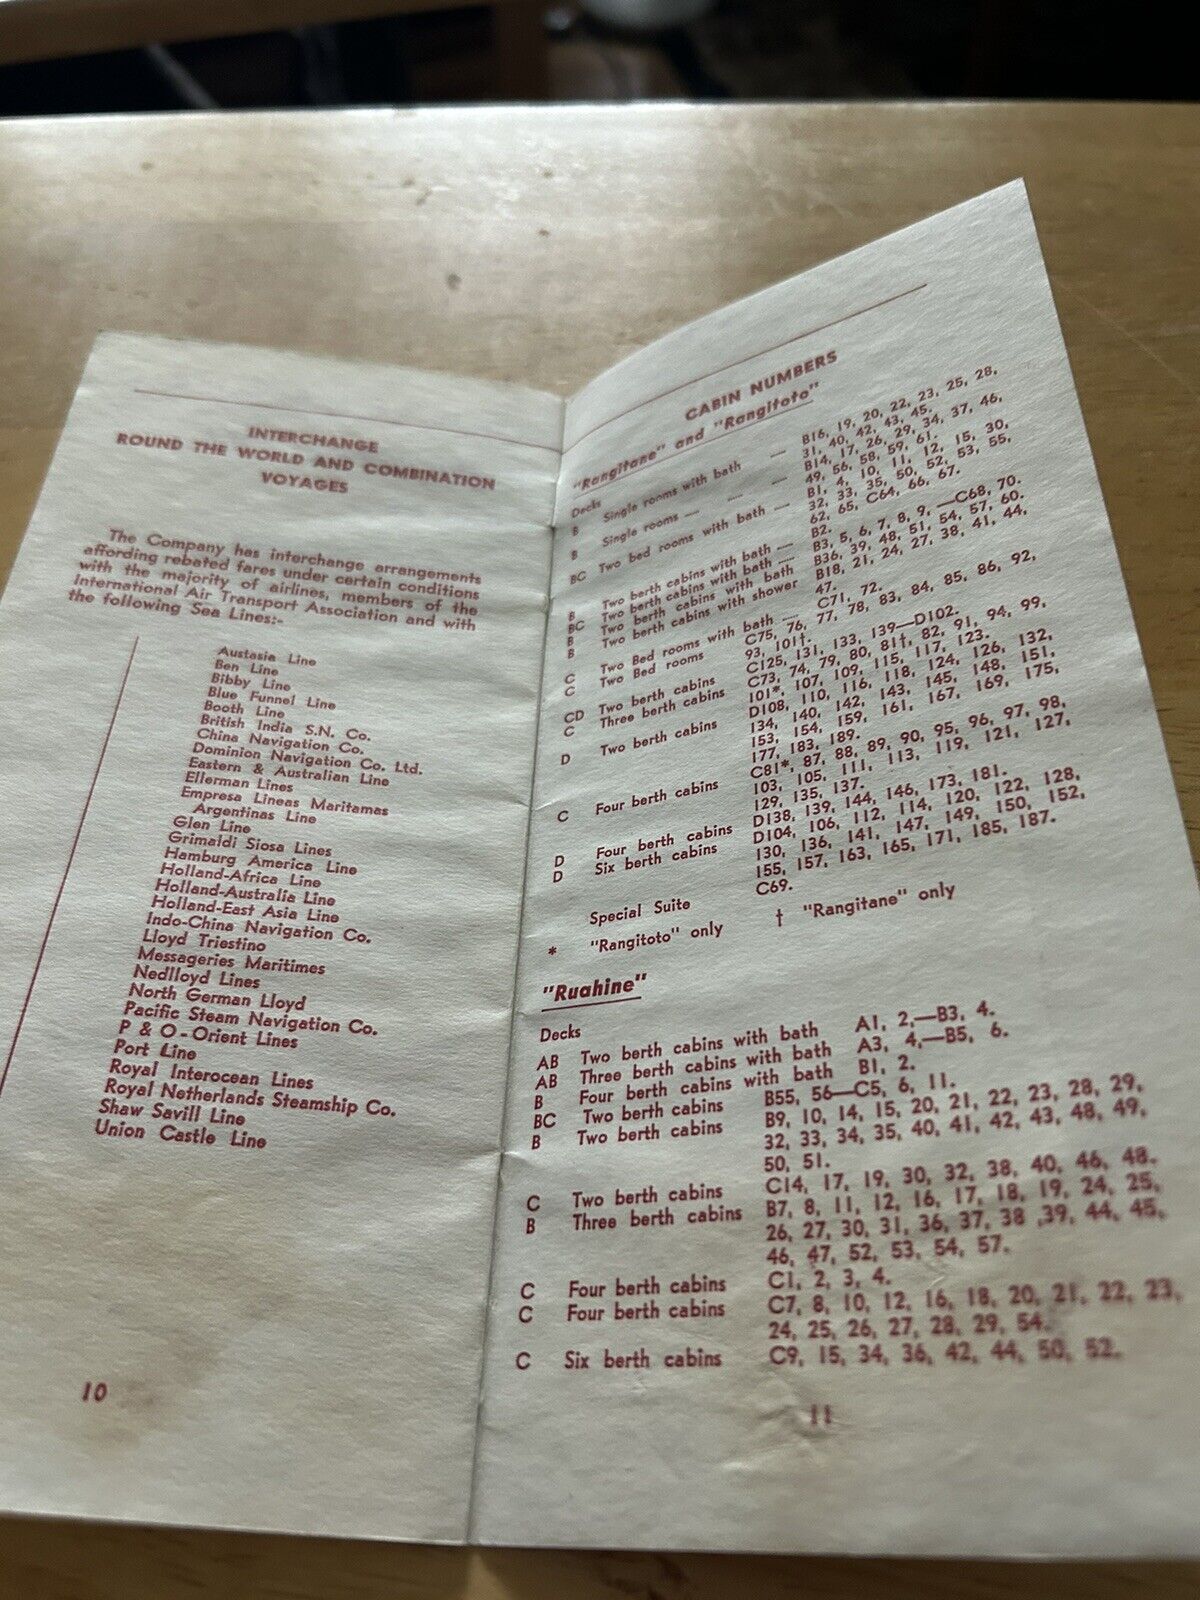 INTERCHANGE
ROUND THE WORLD AND COMBINATION
VOYAGES
The Company has interchange arrangements
affording rebated fares under certain conditions
with the majority of airlines, members of the
International Air Transport Association and with
the following Sea Lines:-
Austasia Line
Ben Line
Bibby Line
Blue Funnel Line
Booth Line
British India S.N. Co.
China Navigation Co.
Dominion Navigation Co. Ltd.
Eastern & Australian Line
Ellerman Lines
Empresa Lineas Maritamas
Argentinas Line
Glen Line
Grimaldi Siosa Lines
Hamburg America Line
Holland-Africa Line
Holland-Australia Line
Holland-East Asia Line
Indo-China Navigation Co.
Lloyd Triestino
Messageries Maritimes
Nedlloyd Lines
North German Lloyd
Pacific Steam Navigation Co.
P & O - Orient Lines
Port Line
Royal Interocean Lines
Royal Netherlands Steamship Co.
Shaw Savill Line
Union Castle Line
10
CABIN NUMBERS
"Rangitane" and "Rangitoto"
Decks
B Single rooms with bath — B16, 19, 20, 22, 23, 25, 28,
31, 40, 42, 43, 45.
B Single rooms — — — B14, 17, 26, 29, 34, 37, 46,
49, 56, 58, 59, 61.
BC Two bed rooms with bath — B1, 4, 10, 11, 12, 15, 30,
32, 33, 35, 50, 52, 53, 55,
62, 65, C64, 66, 67.
B Two berth cabins with bath — B2.
BC Two berth cabins with bath — B3, 5, 6, 7, 8, 9, —C68, 70.
B Two berth cabins with bath B36, 39, 48, 51, 54, 57, 60.
B Two berth cabins with shower B18, 21, 24, 27, 38, 41, 44,
47.
C Two Bed rooms with bath — C71, 72.
C Two Bed rooms C75, 76, 77, 78, 83, 84, 85, 86, 92,
93, 101†.
CD Two berth cabins C125, 131, 133, 139—D102.
C Three berth cabins C73, 74, 79, 80, 81†, 82, 91, 94, 99,
101*, 107, 109, 115, 117, 123.
D Two berth cabins D108, 110, 116, 118, 124, 126, 132,
134, 140, 142, 143, 145, 148, 151,
153, 154, 159, 161, 167, 169, 175,
177, 183, 189.
C Four berth cabins C81*, 87, 88, 89, 90, 95, 96, 97, 98,
103, 105, 111, 113, 119, 121, 127,
129, 135, 137.
D Four berth cabins D138, 139, 144, 146, 173, 181.
D Six berth cabins D104, 106, 112, 114, 120, 122, 128,
130, 136, 141, 147, 149, 150, 152,
155, 157, 163, 165, 171, 185, 187.
Special Suite C69.
* "Rangitoto" only † "Rangitane" only
"Ruahine"
Decks
AB Two berth cabins with bath A1, 2,—B3, 4.
AB Three berth cabins with bath A3, 4,—B5, 6.
B Four berth cabins with bath B1, 2.
BC Two berth cabins B55, 56—C5, 6, 11.
B Two berth cabins B9, 10, 14, 15, 20, 21, 22, 23, 28, 29,
32, 33, 34, 35, 40, 41, 42, 43, 48, 49,
50, 51.
C Two berth cabins C14, 17, 19, 30, 32, 38, 40, 46, 48.
B Three berth cabins B7, 8, 11, 12, 16, 17, 18, 19, 24, 25,
26, 27, 30, 31, 36, 37, 38 ,39, 44, 45,
46, 47, 52, 53, 54, 57.
C Four berth cabins C1, 2, 3, 4.
C Four berth cabins C7, 8, 10, 12, 16, 18, 20, 21, 22, 23,
24, 25, 26, 27, 28, 29, 54.
C Six berth cabins C9, 15, 34, 36, 42, 44, 50, 52.
11